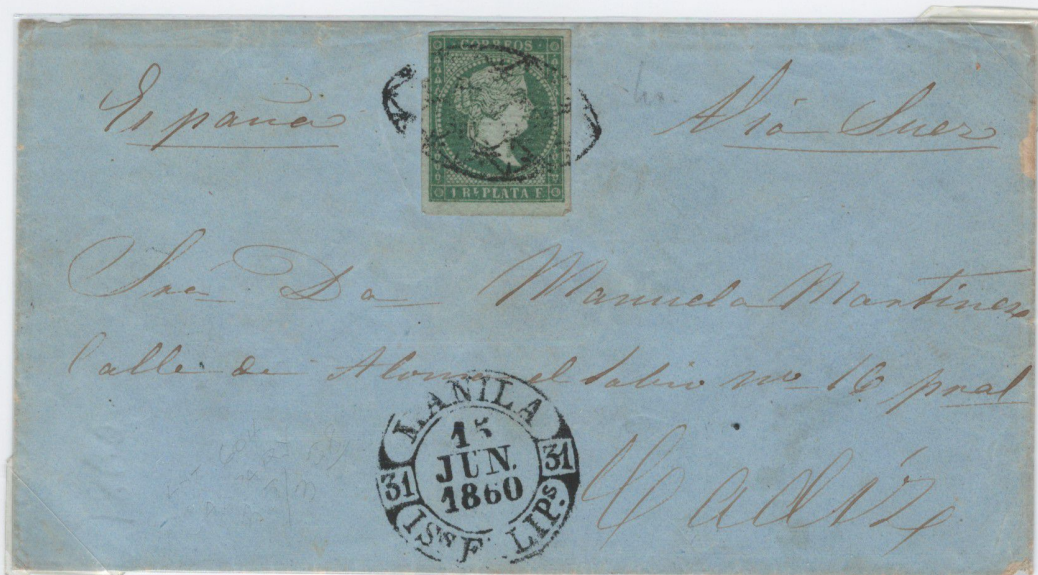 CORREOS
1 Rl. PLATA F.
España
Via Suez
Sra Da Manuela Martinez
Calle de Alonso el Sabio no 16 pral
Cadiz
MANILA
15
JUN.
1860
31
31
ISs F LIPs.